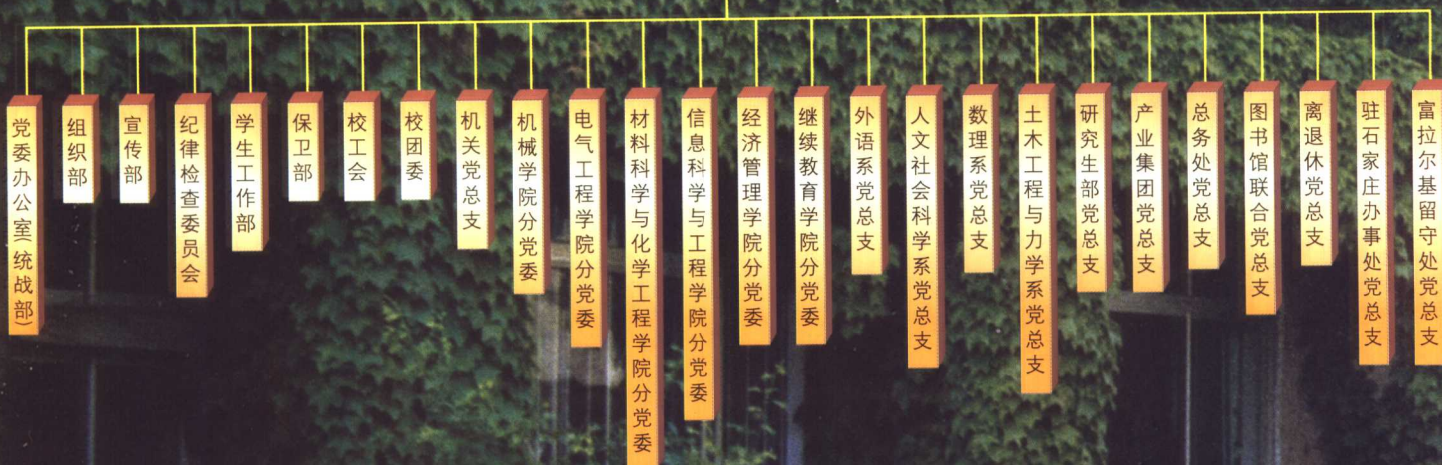 党委办公室(统战部)
组织部
宣传部
纪律检查委员会
学生工作部
保卫部
校工会
校团委
机关党总支
机械学院分党委
电气工程学院分党委
材料科学与化学工程学院分党委
信息科学与工程学院分党委
经济管理学院分党委
继续教育学院分党委
外语系党总支
人文社会科学系党总支
数理系党总支
土木工程与力学系党总支
研究生部党总支
产业集团党总支
总务处党总支
图书馆联合党总支
离退休党总支
驻石家庄办事处党总支
富拉尔基留守处党总支